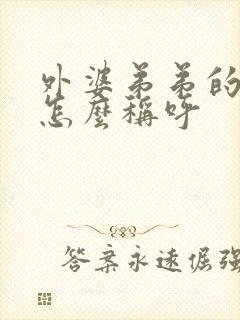 外婆弟弟的
怎麼稱呼
答案永遠倔強